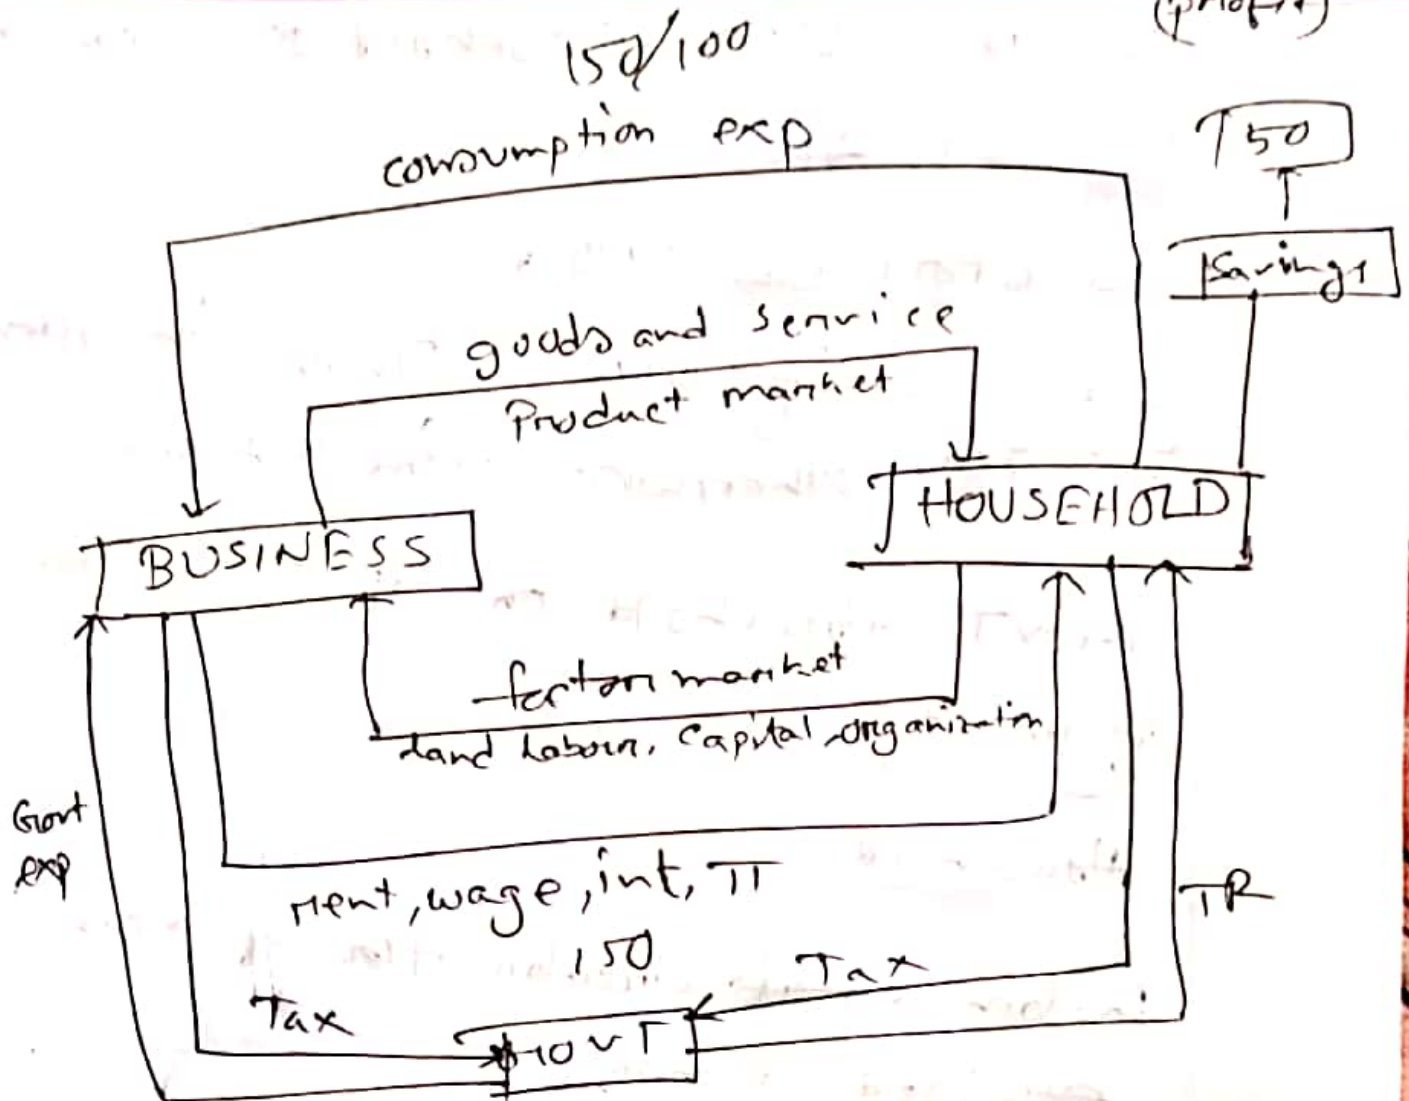 (profit)
150/100
consumption exp
50
Savings
goods and service
Product market
HOUSEHOLD
BUSINESS
factor market
Land Labour, Capital, organization
Govt
exp
rent, wage, int, π
150
TR
Tax
Tax
GOVT